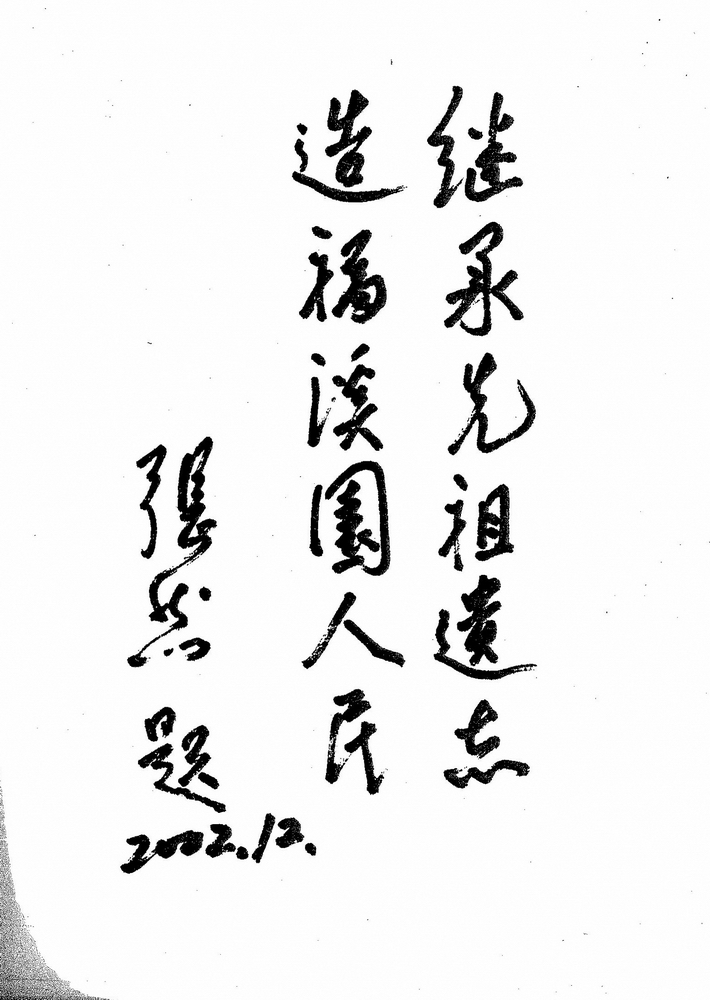 继承先祖遗志
造福溪園人民
張然 题
2002.12.